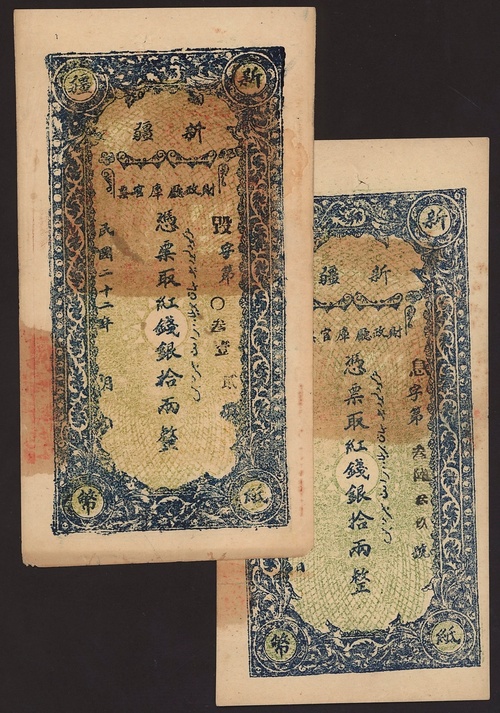 新疆
新疆
財政廳庫官票
字第〇叁壹
憑票取紅錢銀拾兩整
民國二十二年 月
紙幣
新
新疆
財政廳庫官
字第
號
憑票取紅錢銀拾兩整
日
紙幣